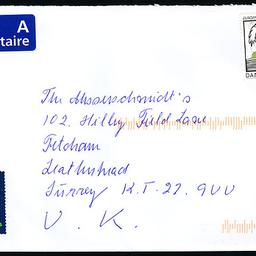 A
itaire
DAN
The Messerschmidt's
102. Hilley Field Lane
Fetcham
Leatherhead
Surrey K.T. 22. 9UU
U.K.